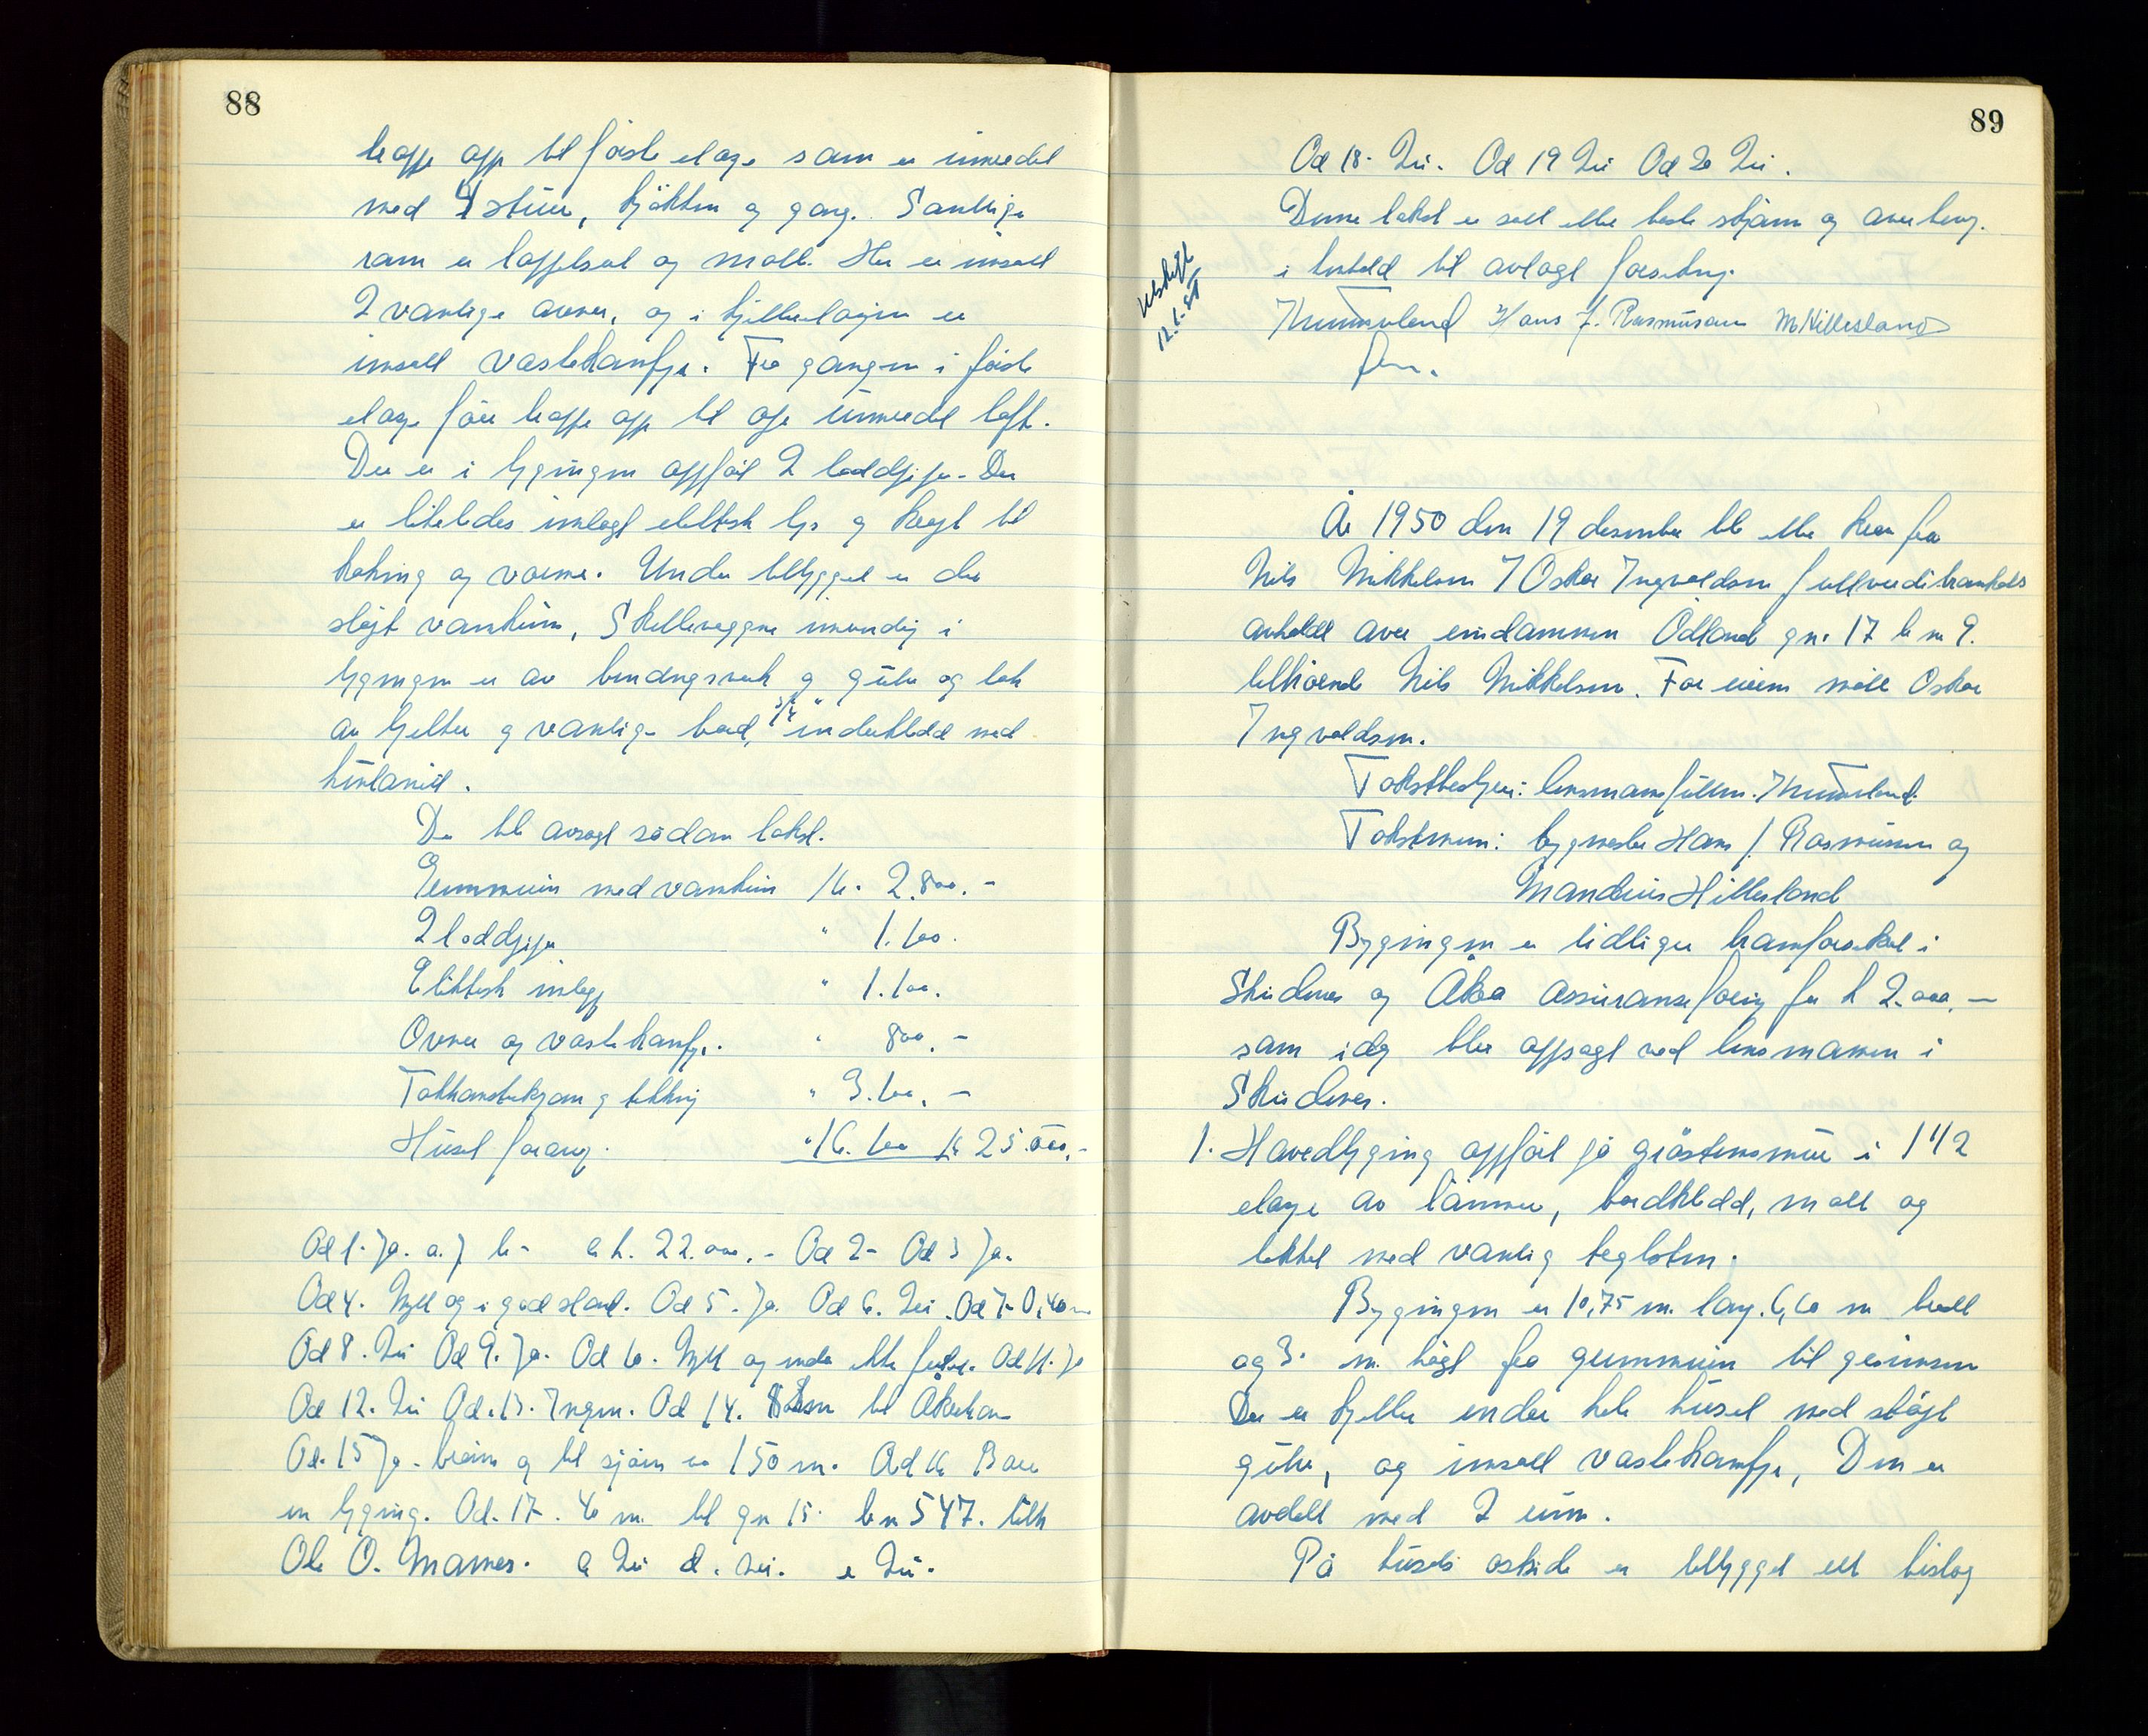 88
trapp opp til første etage som er innredet
med 4 stuer, kjökken og gang. Samtlige
rom er tappetsert og malt. Her er innsatt
2 vanlige ovner, og i kjelleretagen er
innsatt vaskekomfyr. Fra gangen i første
etage fører trapp opp til ope uinnredet loft.
Der er i bygningen oppført 2 loddpiper. Der
er likeledes innlagt elektrisk lys og kraft til
koking og varme. Under tilbygget er der
støpt vankum, Skilleveggene innvendig i
bygningen er av bindingsverk og gulv og tak
av bjelker og vanlige bord, 3/4" innderkledd med
huntonitt.
Der ble avsagt sådan takst.
Grunnmur med vankum Kr. 2.800.-
2 loddpiper " 1.100.
Elektrisk innlegg " 1.100.
Ovner og vaskekomfyr. " 800.-
Takkonstuksjon og tekking " 3.100.-
Huset forøvrig. " 16.100 Kr 25.000,-
Ad 1. Ja. a. J b - c k. 22.000.- Ad 2- Ad 3 Ja.
Ad 4. Nytt og i god stand. Ad 5. Ja. Ad 6. Nei. Ad 7- 0,40 m
Ad 8. Nei Ad 9. Ja. Ad 10. Nytt og enda ikke Ad 11. Ja
Ad 12. Nei Ad. 13. Ingen. Ad 14. til Åkrehavn
Ad. 15 Ja. brönn og til sjøen ca 150 m. Ad 16 Bare
en bygning. Ad. 17. 40 m. til gn 15. bn 547. tilh
Ole O. Mannes. c Nei d. Nei. e Nei.
89
Ad 18. Nei. Ad 19 Nei Ad 20 Nei.
Denne takst er satt etter beste skjønn og overbevisn.
i henhold til avlagt forsikring.
Hans J. Rasmussen M Hillesland
Utskrift
12.1.51
År 1950 den 19 desember ble etter krav fra
Nils Mikkelsen / Oskar Ingvaldsen fullverdi branntakst
avholdt over eiendommen Ådland gn. 17 b n 9.
tilhörende Nils Mikkelsen. For eieren møtte Oskar
Ingvaldsen.
Takstbestyrer: lensmannsfullm.
Takstmenn: bygmester Hans J. Rasmussen og
Mandius Hillesland
Bygningen er tidligere brannforsikret i
Skudenes og Åkra Assuranseforening for k 2.000.—
som idag blev oppsagt ved lensmannen i
Skudenes.
1. Hovedbygning oppført på gråstensmur i 1 1/2
etage av tömmer, bordkledd, malt og
tekket med vanlig teglsten.
Bygningen er 10,75 m. lang. 6,60 m bred
og 3. m. högt fra grunnmuren til gesimsen
Der er kjeller under hele huset med støpt
gulv, og innsatt vaskekomfyr, Den er
avdelt med 2 rum.
På husets ostside er tilbygget ett bislag